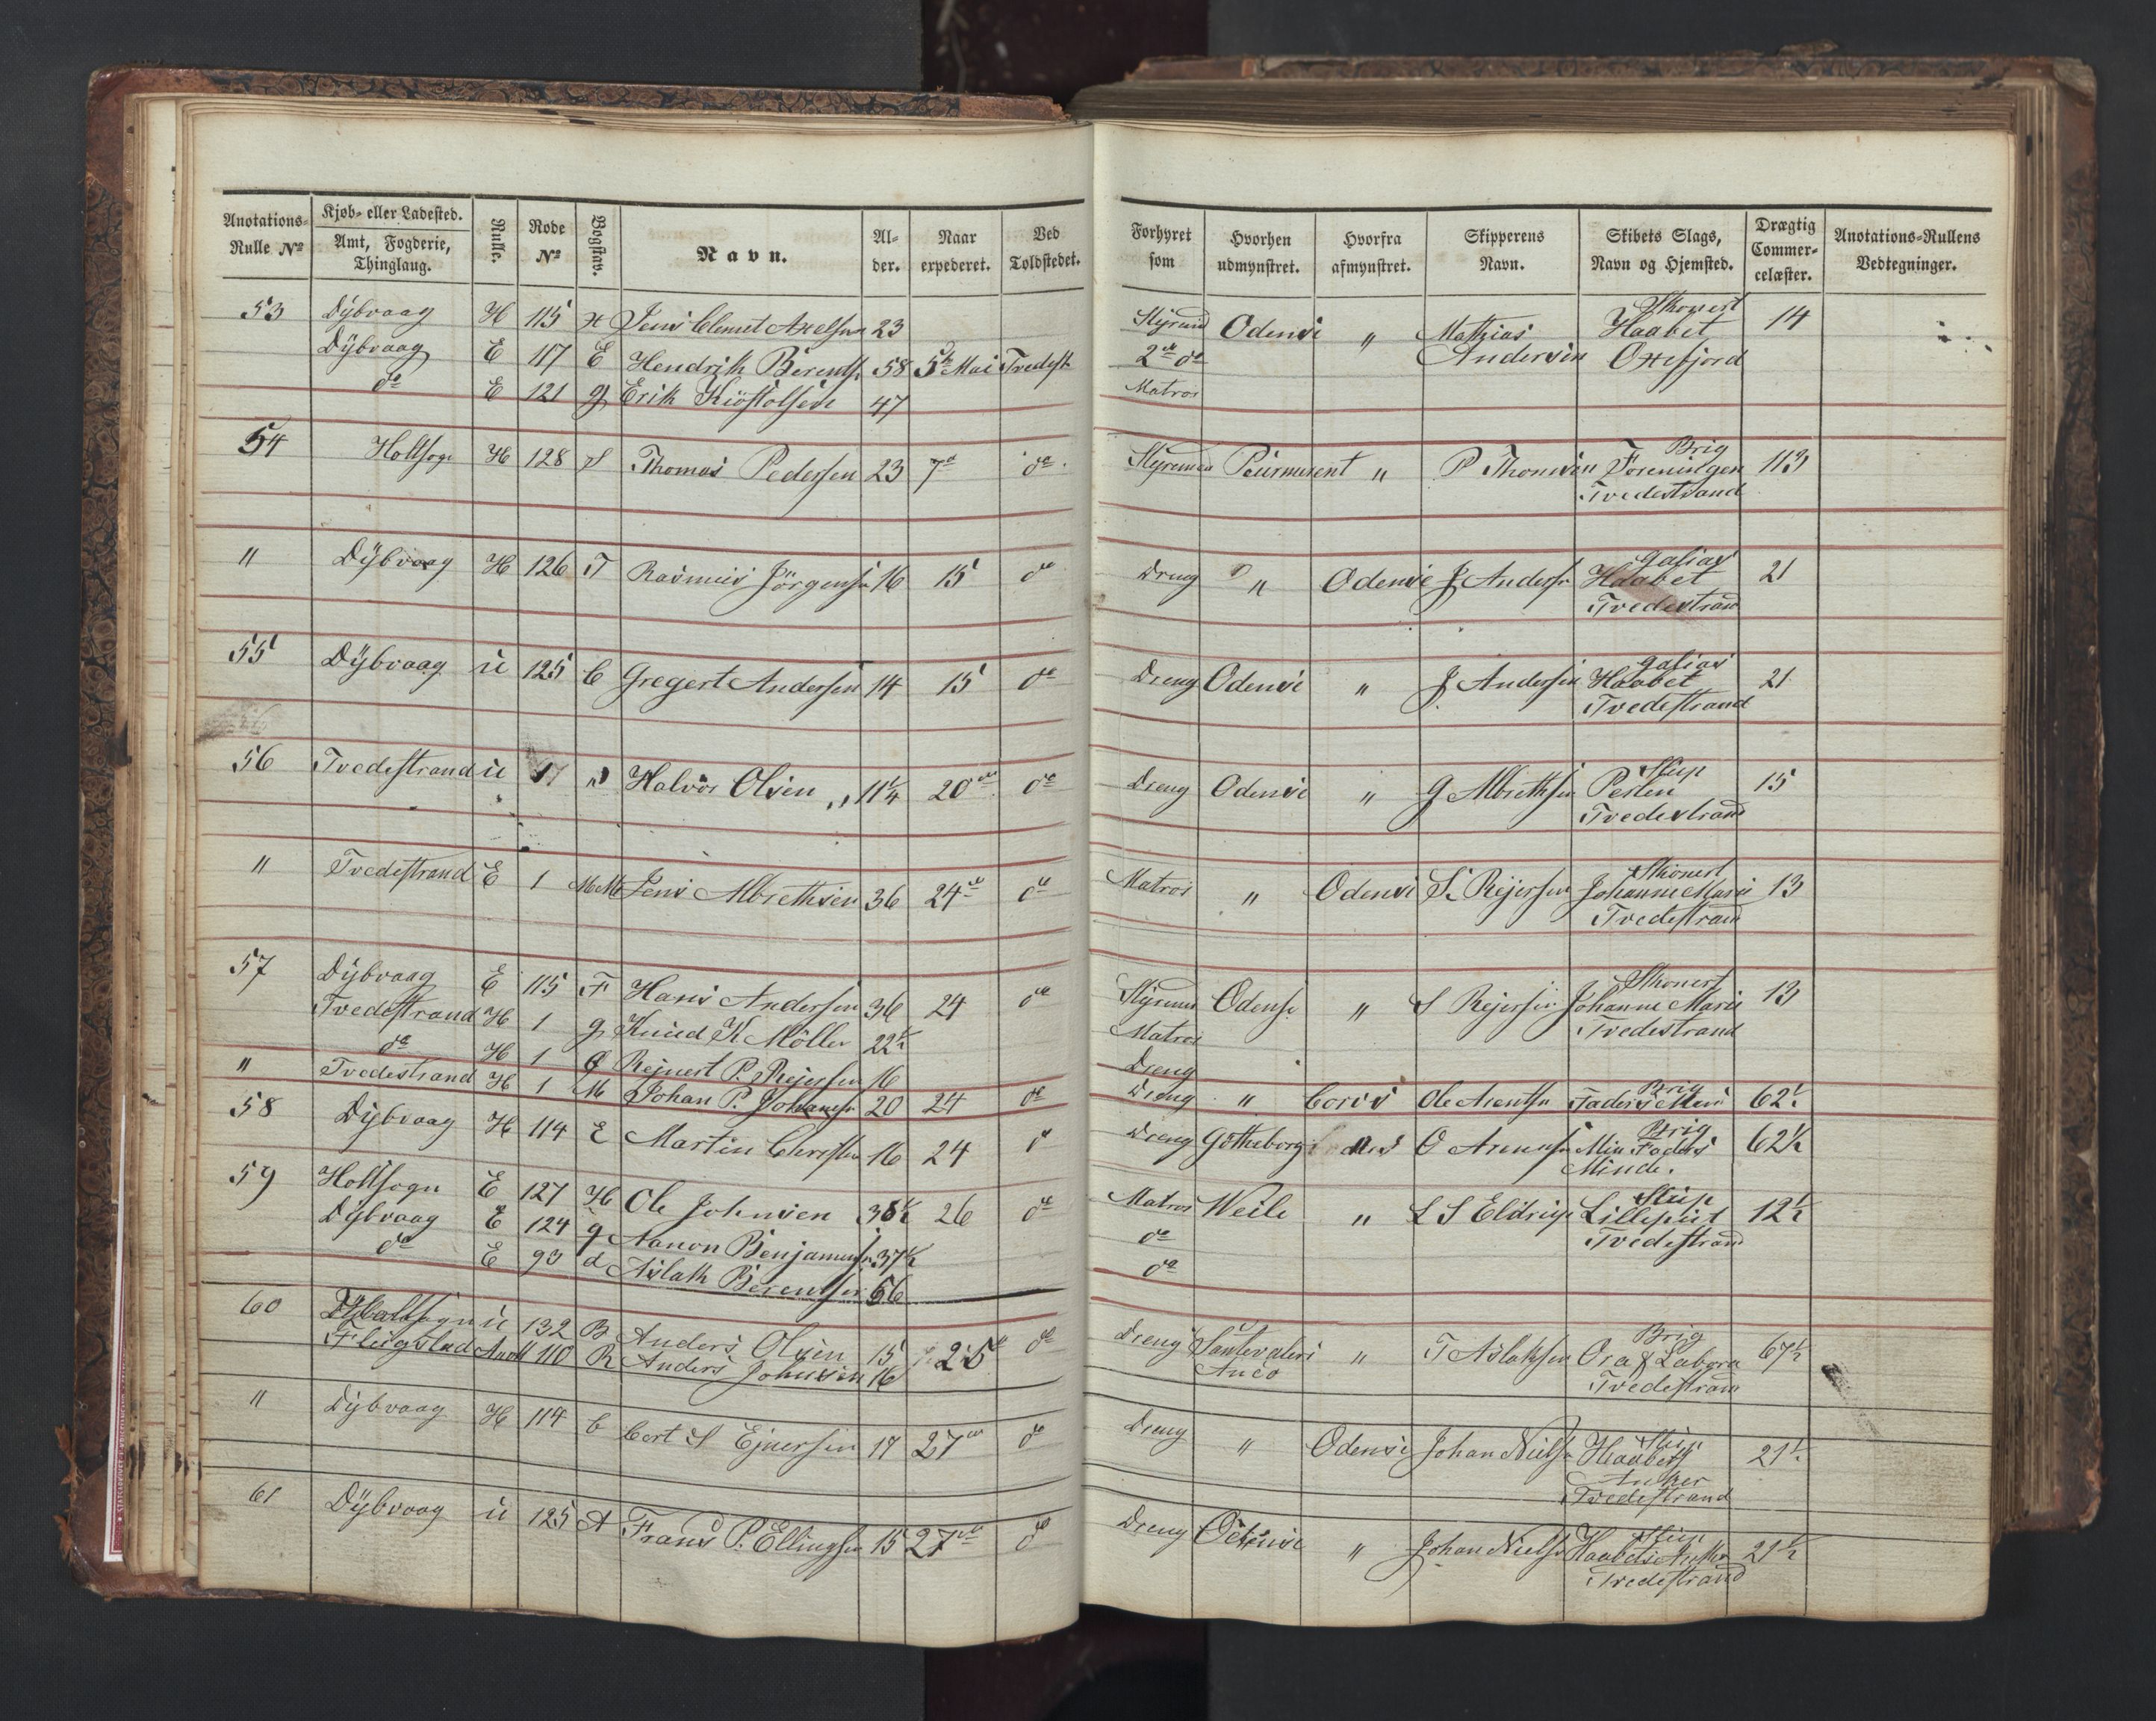 Anotations- Rulle No
Kjøb- eller Ladested.
Amt, Fogderie, Thinglaug.
Rulle.
Rode No
Bogstav.
Navn.
Al- der.
Naar expederet.
Ved Toldstedet.
Forhyret som
Hvorhen udmynstret.
Hvorfra afmynstret.
Skipperens Navn.
Skibets Slags, Navn og Hjemsted.
Drægtig Commer- celæster.
Anotations-Rullens Vedtegninger.
53 Dÿbvaag H 115 H Jens Clemet Axelsen 23 Odense " Mathias Andersen Skonert Haabet 14
Dÿbvaag E 117 E Hendrik Berents. 58 5te Mai Tvedest. 2de do
do E 121 g Erik Kiöstolsen 47 Matros
54 Holtsogn H 128 Thomas Pedersen 23 7de do Styrmand " P Thomsen Brig Foreningen Tvedestrand 113
" Dÿbvaag H 126 T Rasmus Jörgensen 16 15 do Dreng " Odense J Andersn Galias Haabet Tvedestrand 21
55 Dÿbvaag ü 125 C Gregert Andersen 14 15 do Dreng Odense " J Andersen Galias Haabet Tvedestrand 21
56 Tvedestrand ü 1 Halvor Olsen 11 1/4 20de do Dreng Odense " G Albrethsen Slup Perlen Tvedestrand 15
" Tvedestrand E 1 Jens Albrethsen 36 24de do Matros " Odense S. Rejersen Skonert Johanne Marie Tvedestrand 13
57 Dÿbvaag E 115 F Hans Andersen 36 24 do Styrmand Odense " S Rejersen Skonert Johanne Marie Tvedestrand 13
Tvedestrand H 1 g Knud K Möller 22 1/2 Matros
do H 1 Rejnert P. Rejersen 16 Dreng
" Tvedestrand H 1 M Johan P. Johansen 20 24 do Dreng " Ole Arentsn Brig Faders Minde 62 1/2
58 Dÿbvaag H 114 E Martin Christen 16 24 do Dreng Götheborg O Arentsn Brig Min Faders Minde. 62 1/2
59 Holtsogn E 127 H Ole Johnsen 38 1/2 26 do Matros Weile " Slup Tvedestrand 12 1/2
Dÿbvaag E 124 g Aanon Benjamensen 37 1/2 do
do E 93 d Aslak Berentsen 66 do
60 ü 132 B Anders Olsen 15 25de do Dreng " T Aslaksen Brig Ora & Labora Tvedestrand 67 1/2
110 R Anders Johnsen 16
" Dÿbvaag H 114 C Cort S Ejnersen 17 27de do Dreng " Odense Johan Nielsn Slup Haabets Anker Tvedestrand 21 1/2
61 Dÿbvaag ü 125 A Frans P. Ellingsen 15 27de do Dreng Odense " Johan Nielsn Slup Haabets Anker Tvedestrand 21 1/2